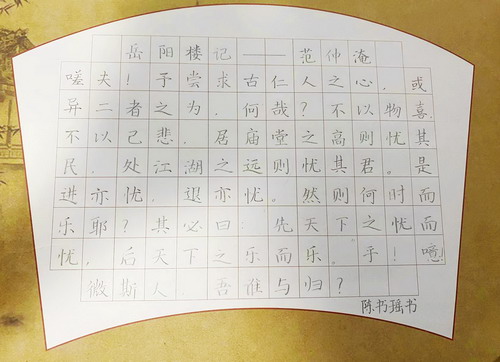 岳阳楼记——范仲淹
嗟夫！予尝求古仁人之心，或
异二者之为，何哉？不以物喜
不以己悲，居庙堂之高则忧其
民，处江湖之远则忧其君。是
进亦忧，退亦忧。然则何时而
乐耶？其必曰：先天下之忧而
忧，后天下之乐而乐。乎！噫！
微斯人，吾谁与归？
陈书瑶书